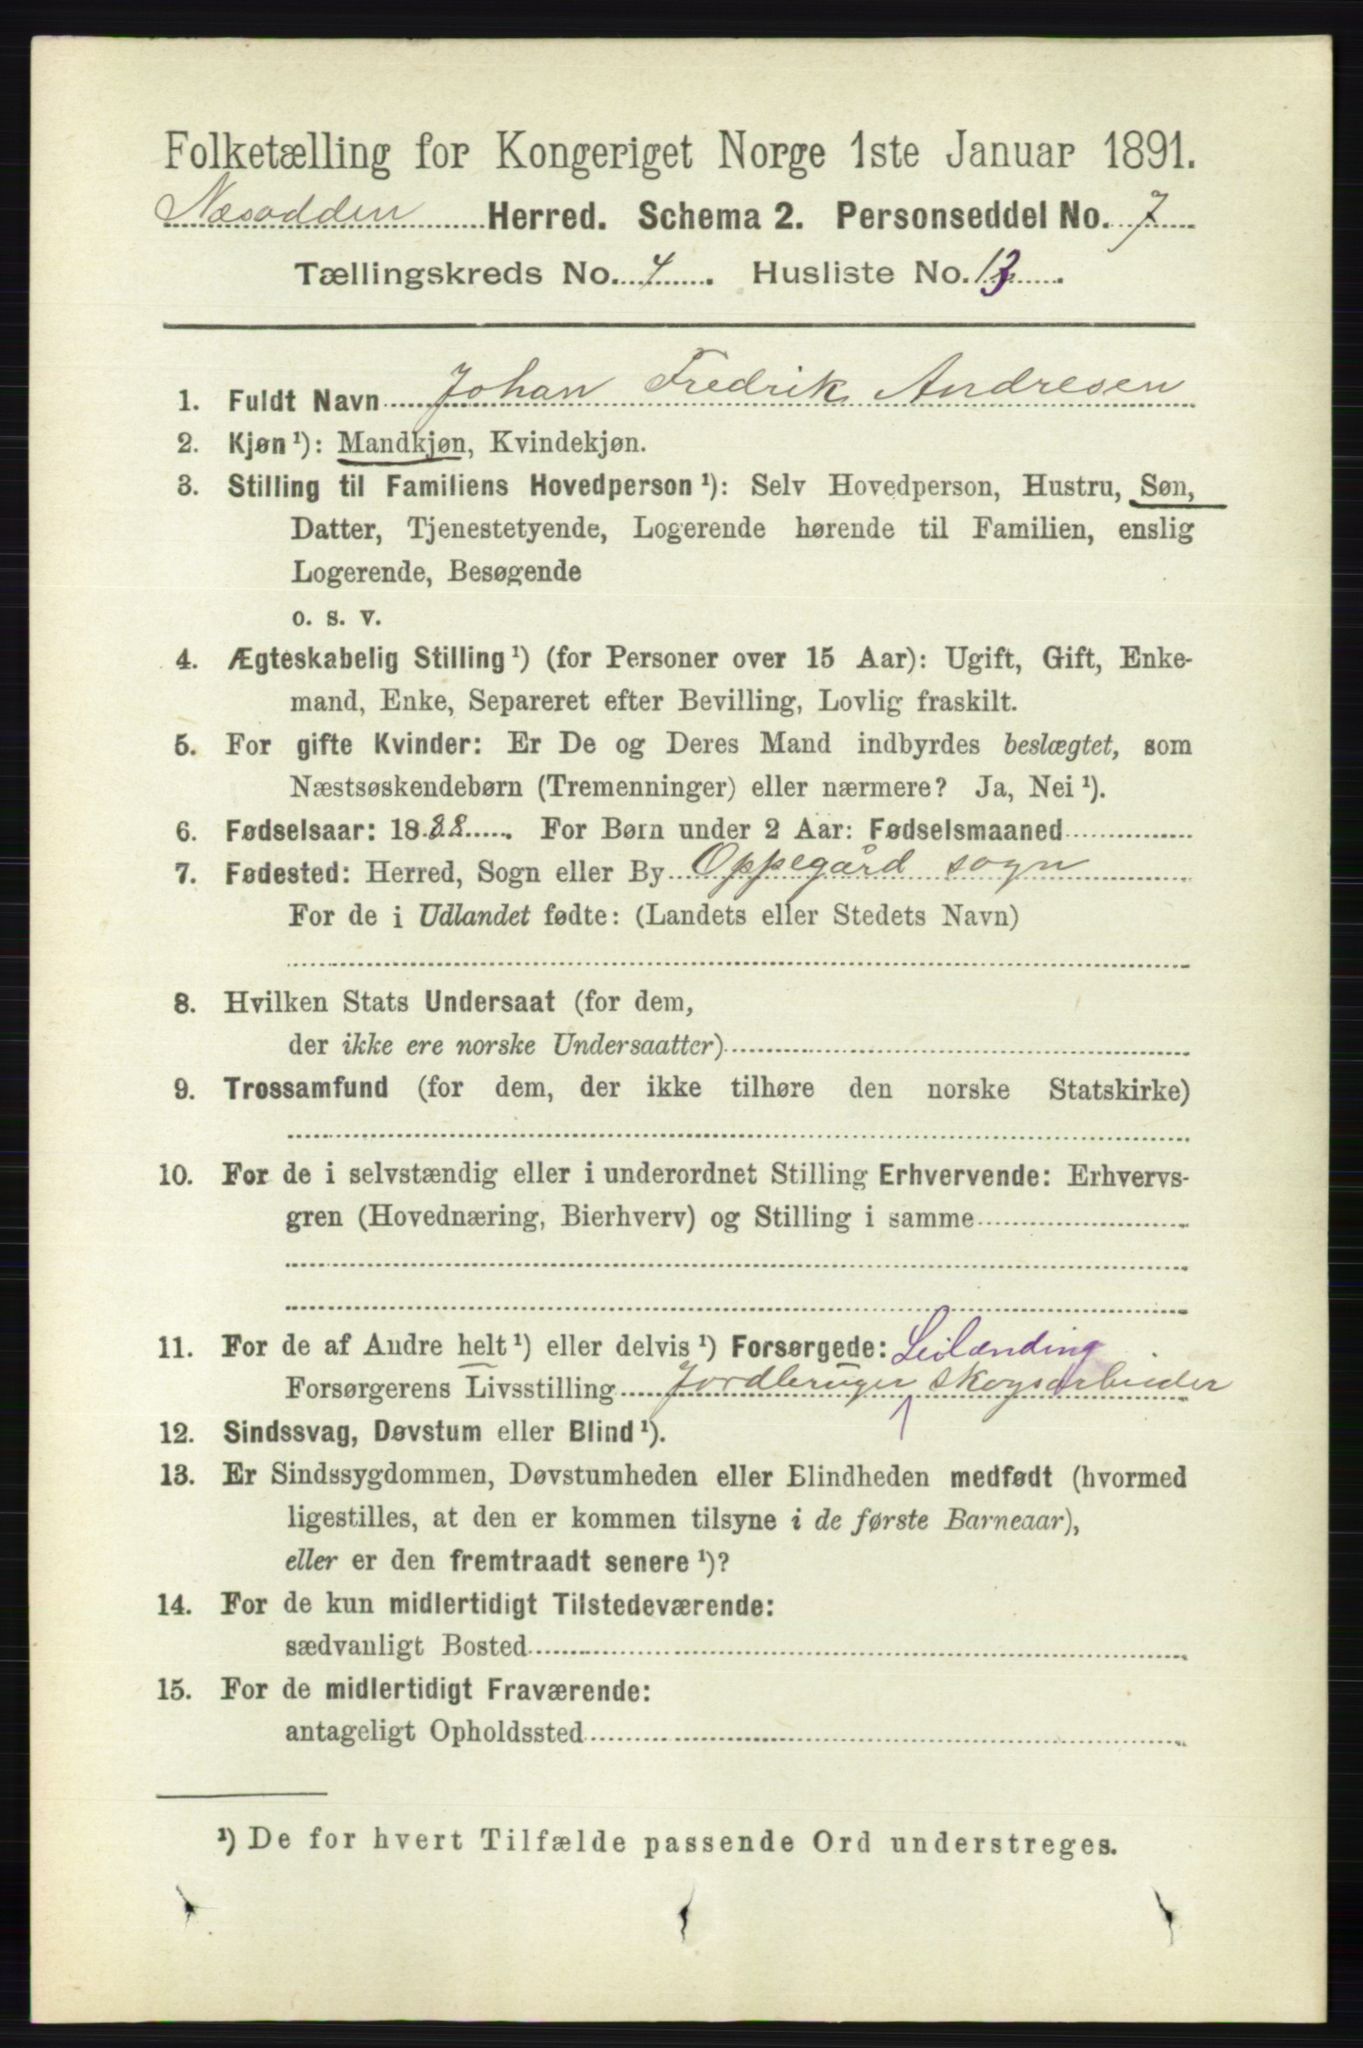 Folketælling for Kongeriget Norge 1ste Januar 1891.
Næsodden Herred. Schema 2. Personseddel No. 7
Tællingskreds No. 4. Husliste No. 13.
1. Fuldt Navn Johan Fredrik Andresen
2. Kjøn¹): Mandkjøn, Kvindekjøn.
3. Stilling til Familiens Hovedperson¹): Selv Hovedperson, Hustru, Søn,
Datter, Tjenestetyende, Logerende hørende til Familien, enslig
Logerende, Besøgende
o. s. v.
4. Ægteskabelig Stilling¹) (for Personer over 15 Aar): Ugift, Gift, Enke-
mand, Enke, Separeret efter Bevilling, Lovlig fraskilt.
5. For gifte Kvinder: Er De og Deres Mand indbyrdes beslægtet, som
Næstsøskendebørn (Tremenninger) eller nærmere? Ja, Nei¹).
6. Fødselsaar: 1888. For Børn under 2 Aar: Fødselsmaaned
7. Fødested: Herred, Sogn eller By Oppegård sogn
For de i Udlandet fødte: (Landets eller Stedets Navn)
8. Hvilken Stats Undersaat (for dem,
der ikke ere norske Undersaatter)
9. Trossamfund (for dem, der ikke tilhøre den norske Statskirke)
10. For de i selvstændig eller i underordnet Stilling Erhvervende: Erhvervs-
gren (Hovednæring, Bierhverv) og Stilling i samme
11. For de af Andre helt¹) eller delvis¹) Forsørgede: Leilænding
Forsørgerens Livsstilling Jordbruger skogsarbeider
12. Sindssvag, Døvstum eller Blind¹).
13. Er Sindssygdommen, Døvstumheden eller Blindheden medfødt (hvormed
ligestilles, at den er kommen tilsyne i de første Barneaar),
eller er den fremtraadt senere¹)?
14. For de kun midlertidigt Tilstedeværende:
sædvanligt Bosted
15. For de midlertidigt Fraværende:
antageligt Opholdssted
¹) De for hvert Tilfælde passende Ord understreges.